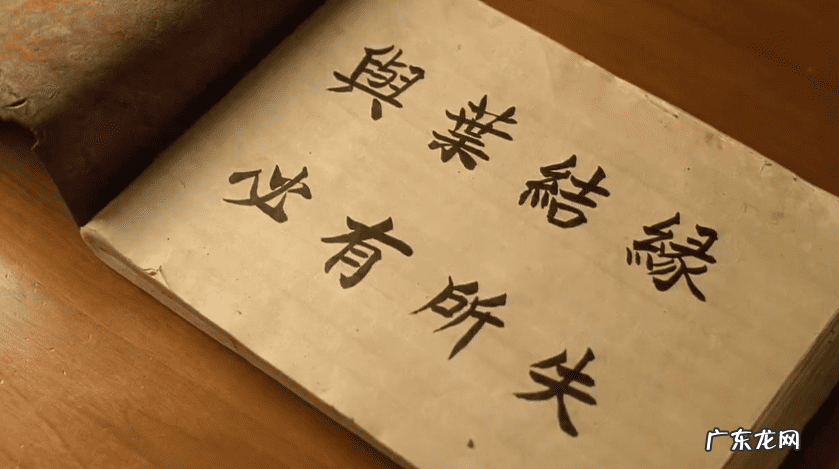 與葉結緣
必有所失
广东龙网